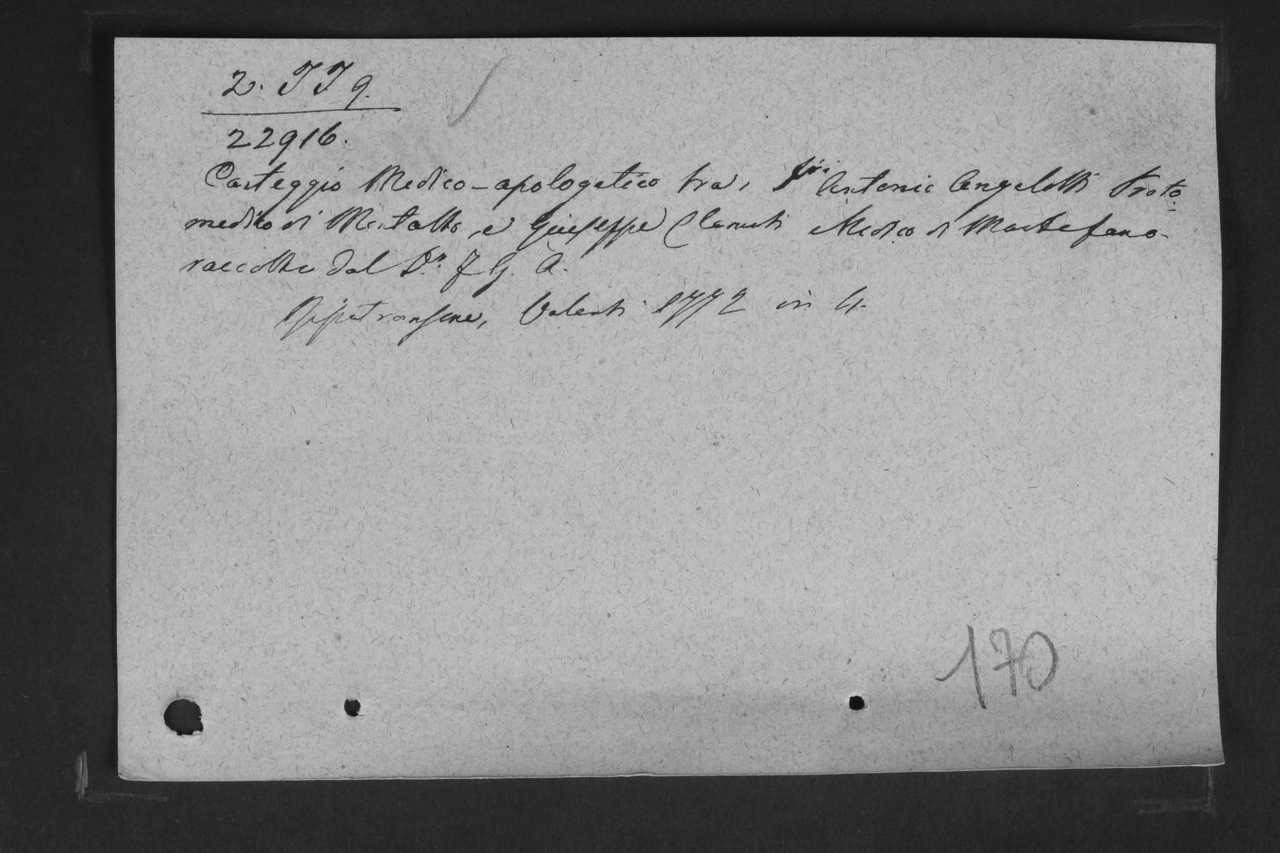 2. JJ 9.
22916.
Carteggio Medico-apologetico tra i Sri Antonio Angelotti Proto
medico di Montalto, e Giuseppe Clanuti Medico di Montefano
raccolto dal Dr. F. G. A.
Ripatransone, Valenti 1772 in 4.
170